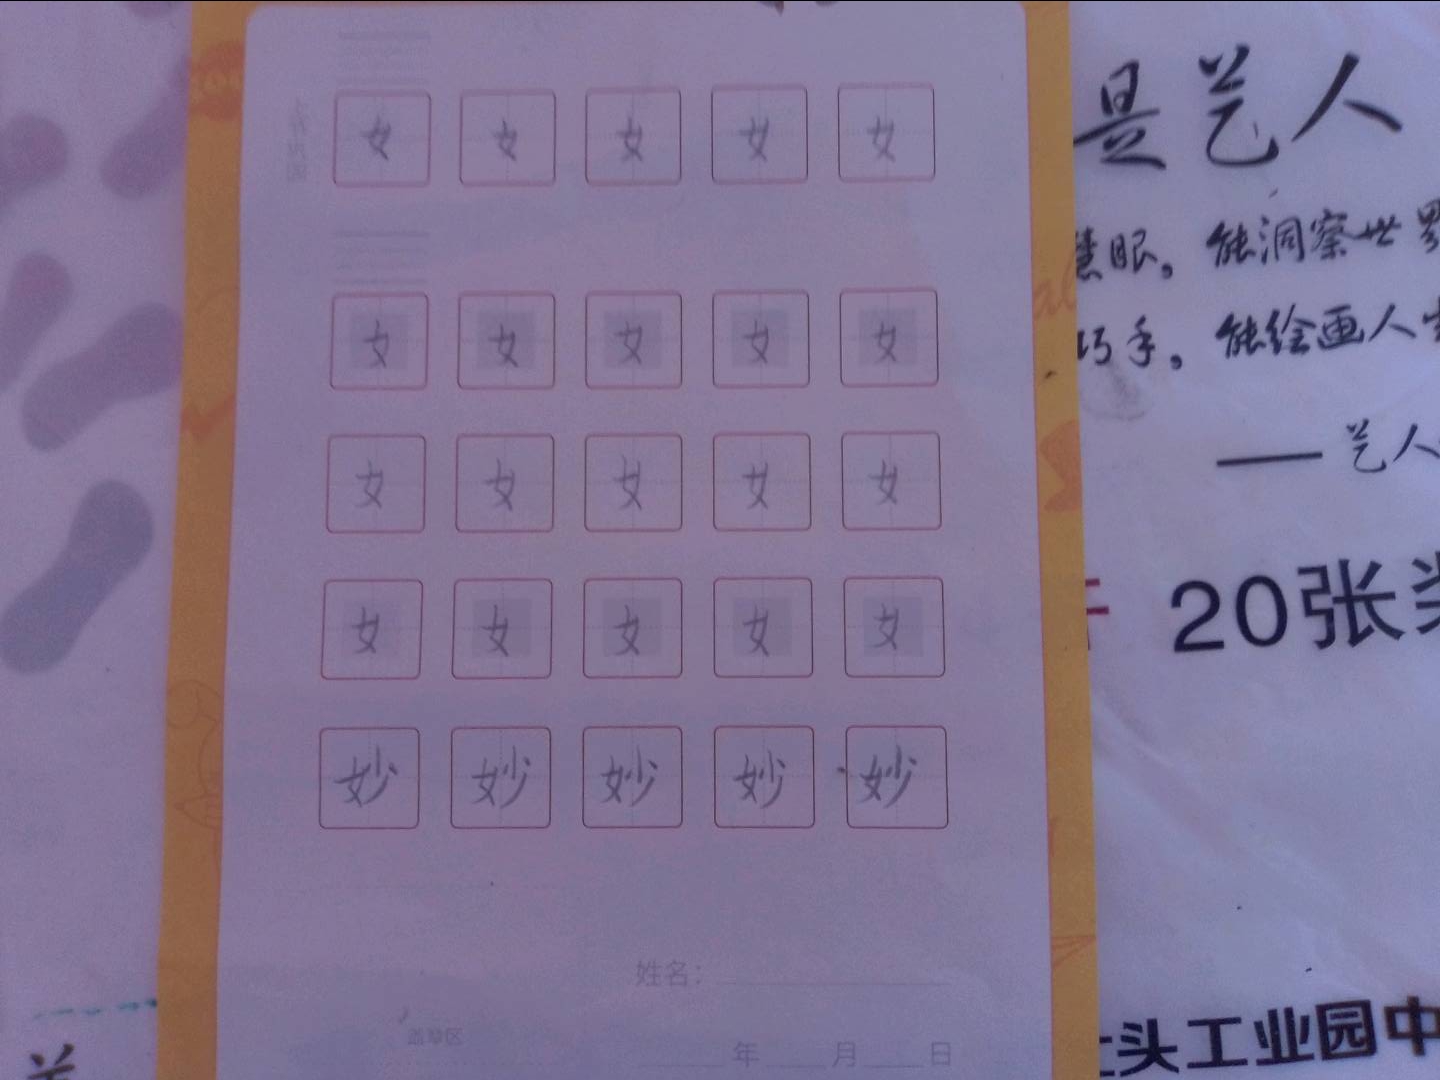 女 女 女 女 女
女 女 女 女 女
女 女 女 女 女
女 女 女 女 女
妙 妙 妙 妙 妙
姓名：
盖章区
年 月 日
是艺人
慧眼。能洞察世界
巧手。能绘画人
—— 艺人
20张
头工业园中